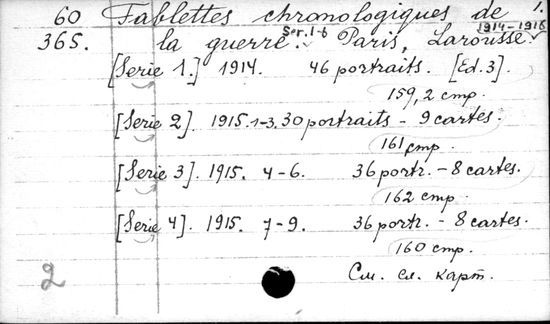 60 Tablettes chronologiques de 1.
365. la guerre. Ser. 1-6 Paris, Larousse. 1914-1916
[Serie 1.] 1914. 46 portraits. [Ed. 3].
159, 2 стр.
[Serie 2]. 1915. 1-3. 30 portraits - 9 cartes.
161 стр.
[Serie 3]. 1915. 4-6. 36 portr. - 8 cartes.
162 стр.
[Serie 4]. 1915. 7-9. 36 portr. - 8 cartes.
160 стр.
2 См. сл. карт.